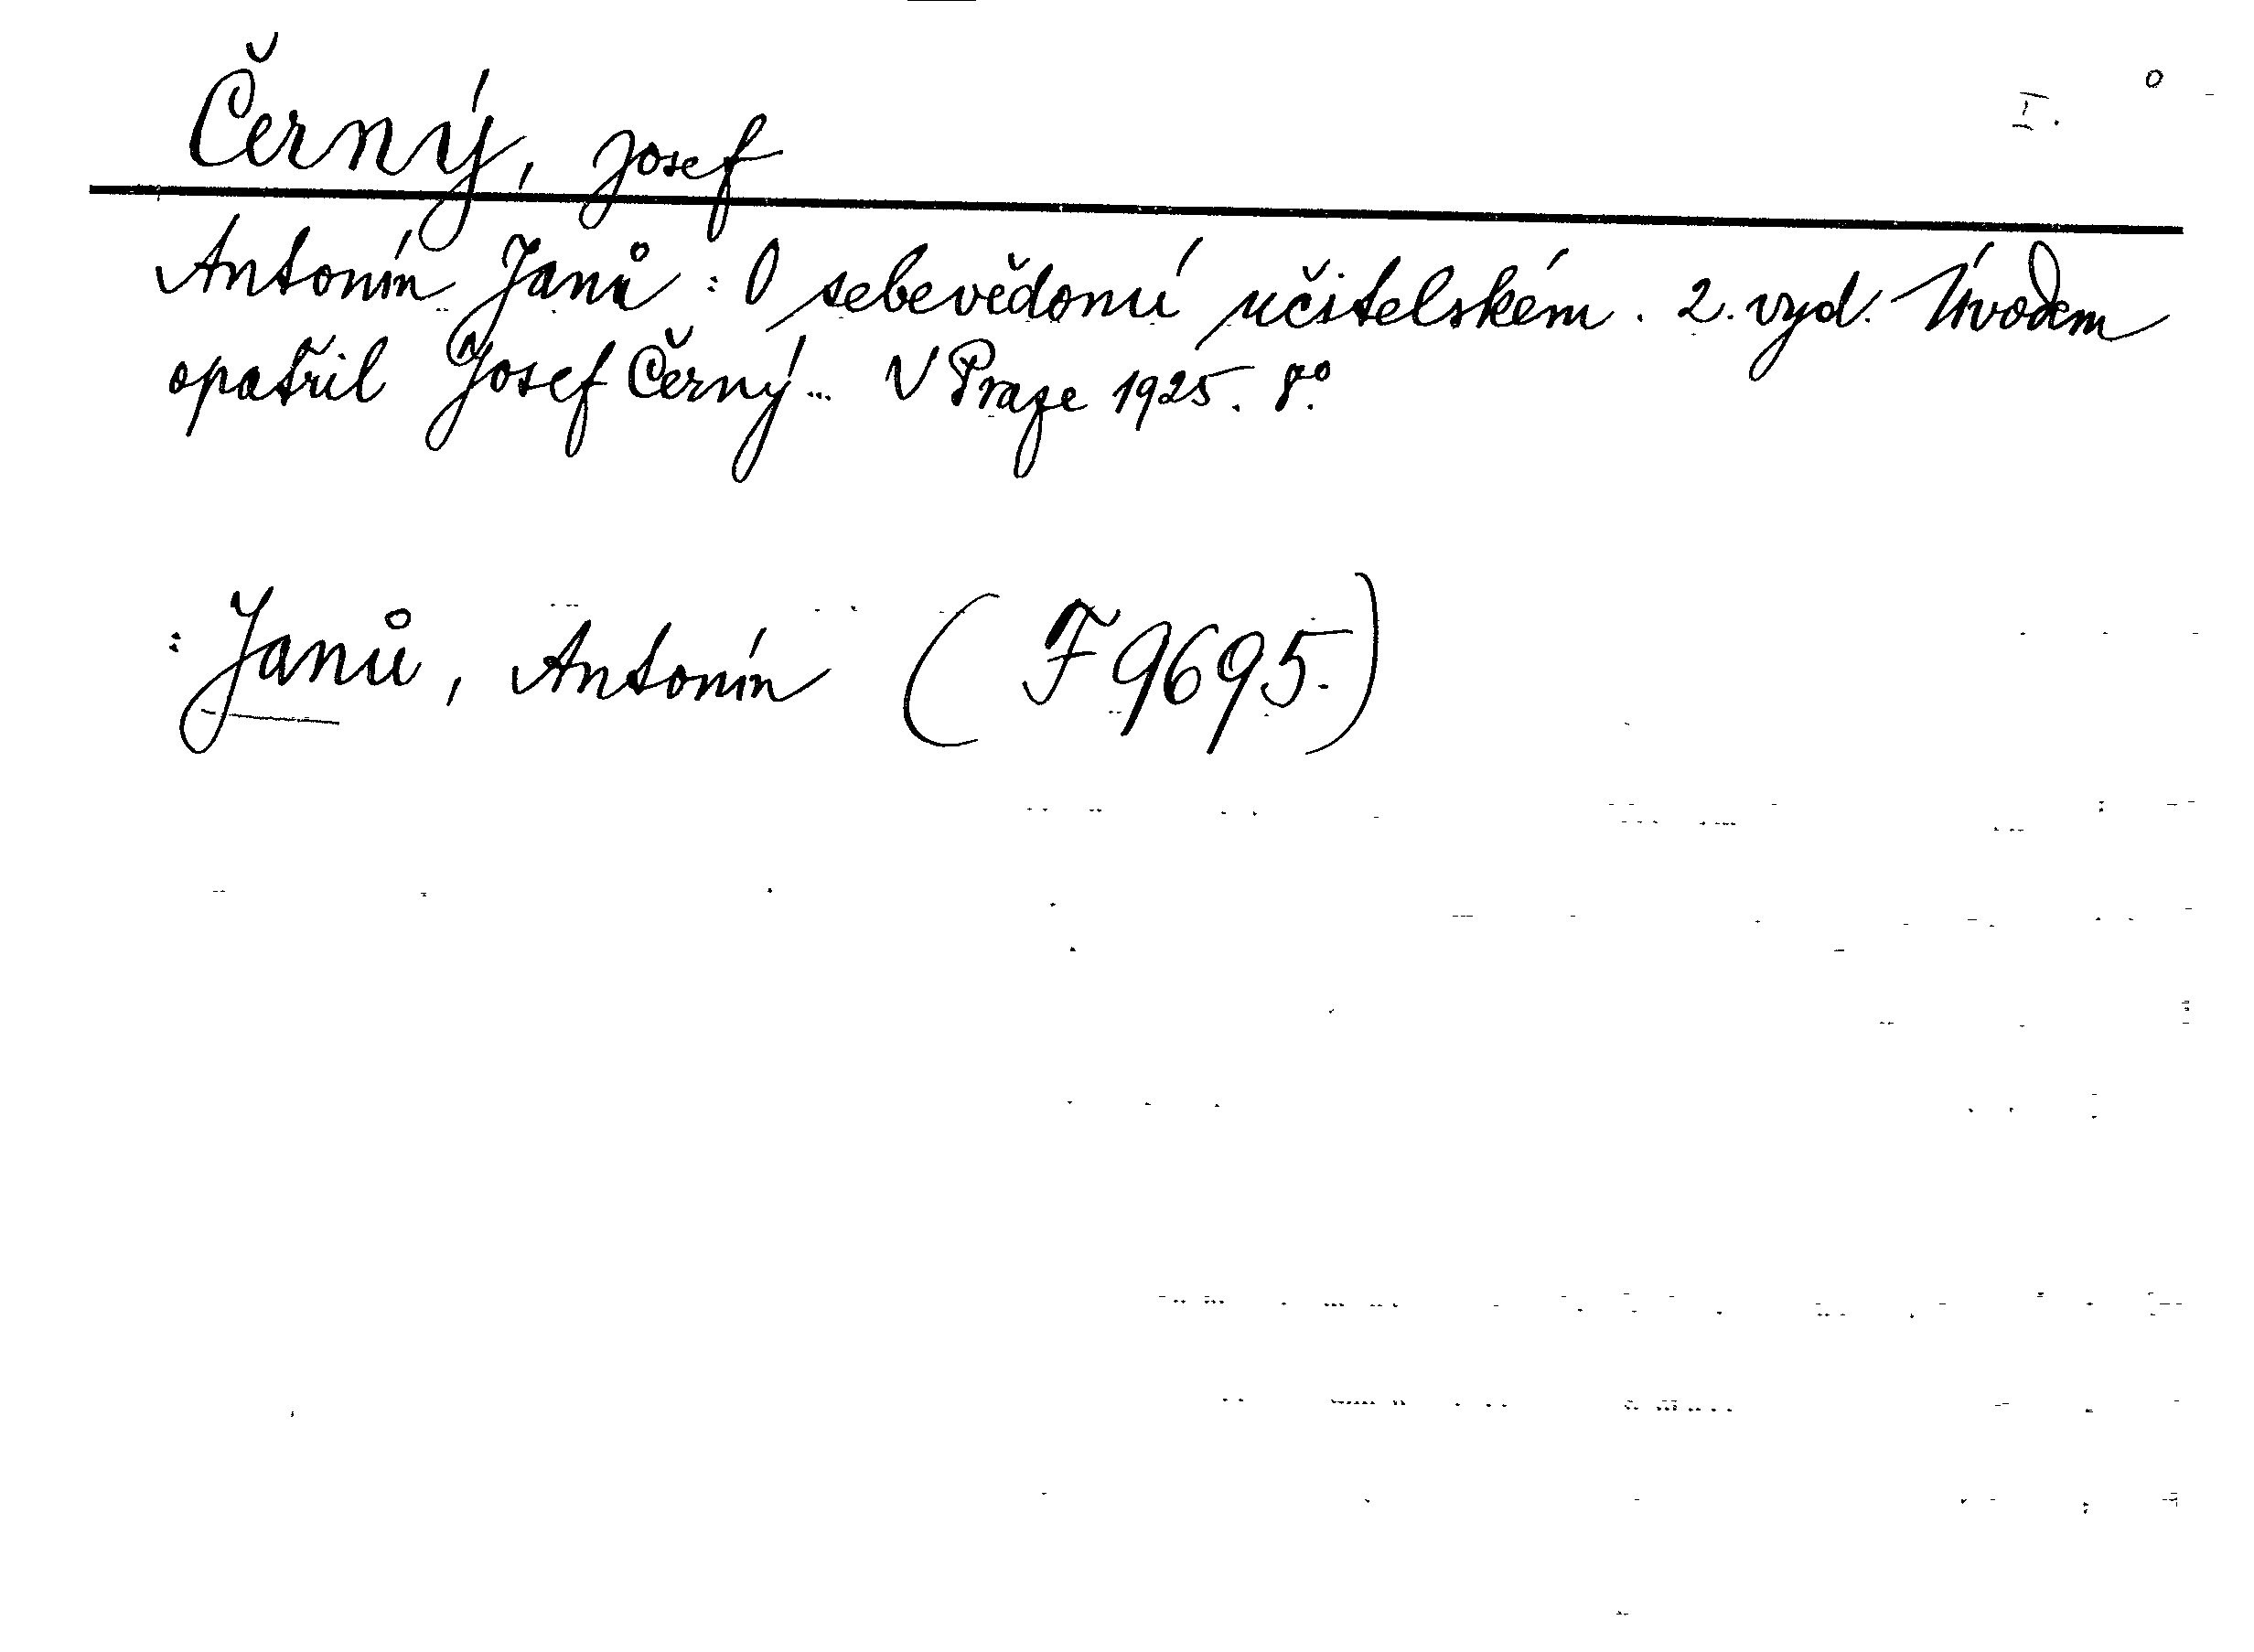 Černý, Josef
I.
Antonín Janů: O sebevědomí učitelském. 2. vyd. Úvodem
opatřil Josef Černý... V Praze 1925. 8°.
: Janů, Antonín (F 9695.)